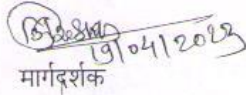 19/04/2023
मार्गदर्शक